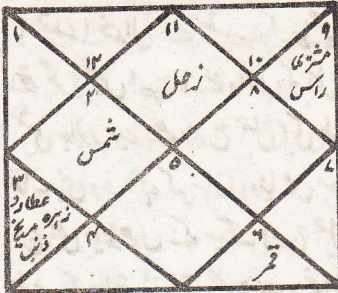 ۱
۱۱
۹
۱۲
۱۰
مشتری
راس
زحل
۲
۸
شمس
۵
۷
۳
عطارد
زہرہ مریخ
ذنب
۴
۶
قمر